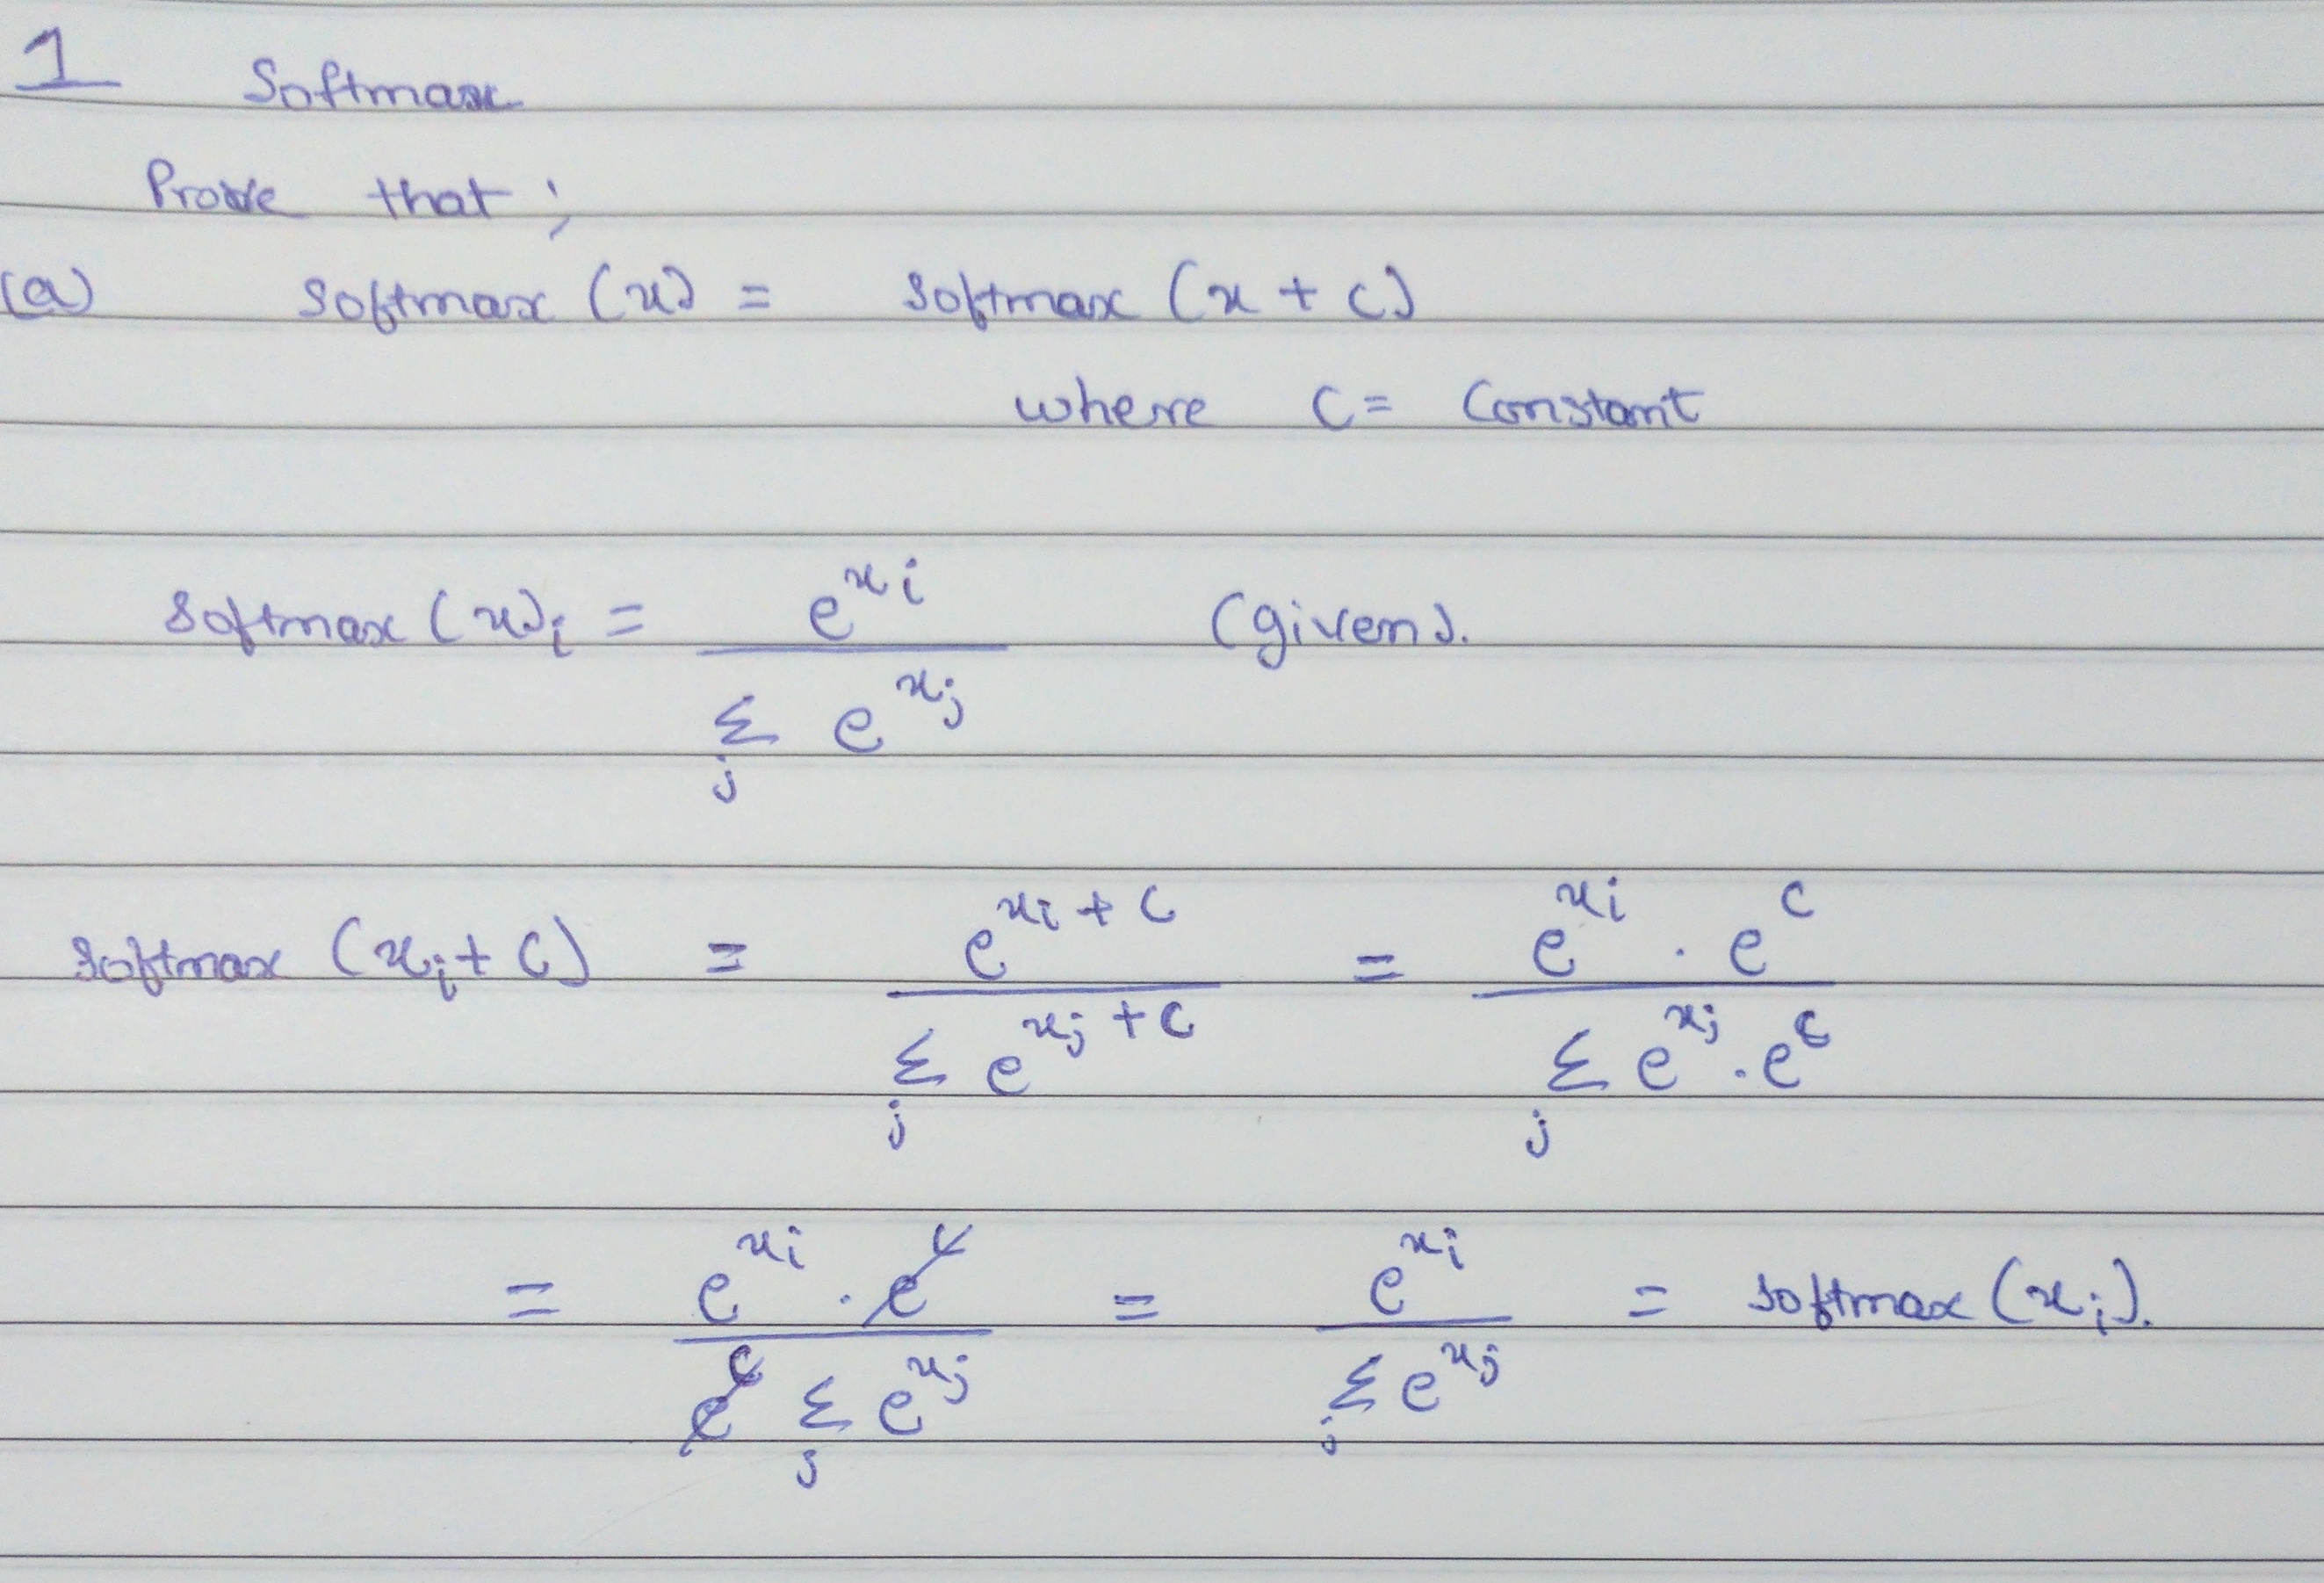 1 Softmax
Prove that;
(a) Softmax (x) = Softmax (x + c)
where c = constant
Softmax (x)_i = e^{x_i} / Σ_j e^{x_j} (given).
Softmax (x_i + c) = e^{x_i + c} / Σ_j e^{x_j + c} = e^{x_i} . e^c / Σ_j e^{x_j} . e^c
= e^{x_i} . e^c / e^c Σ_j e^{x_j} = e^{x_i} / Σ_j e^{x_j} = Softmax (x_i).